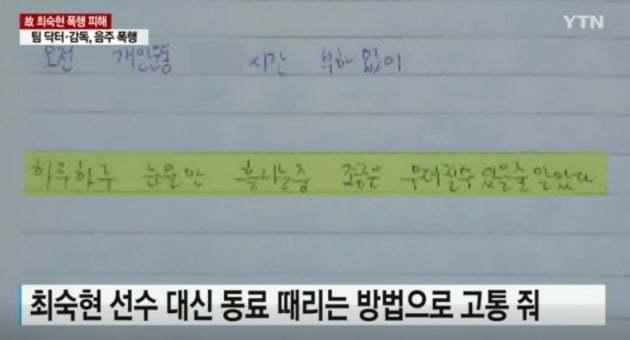 故 최숙현 폭행 피해
팀 닥터·감독, 음주 폭행
YTN
오전 개인운동 시간 부하없이
하루하루 눈물만 흘리는중 조금은 무뎌질수 있을줄 알았다.
최숙현 선수 대신 동료 때리는 방법으로 고통 줘